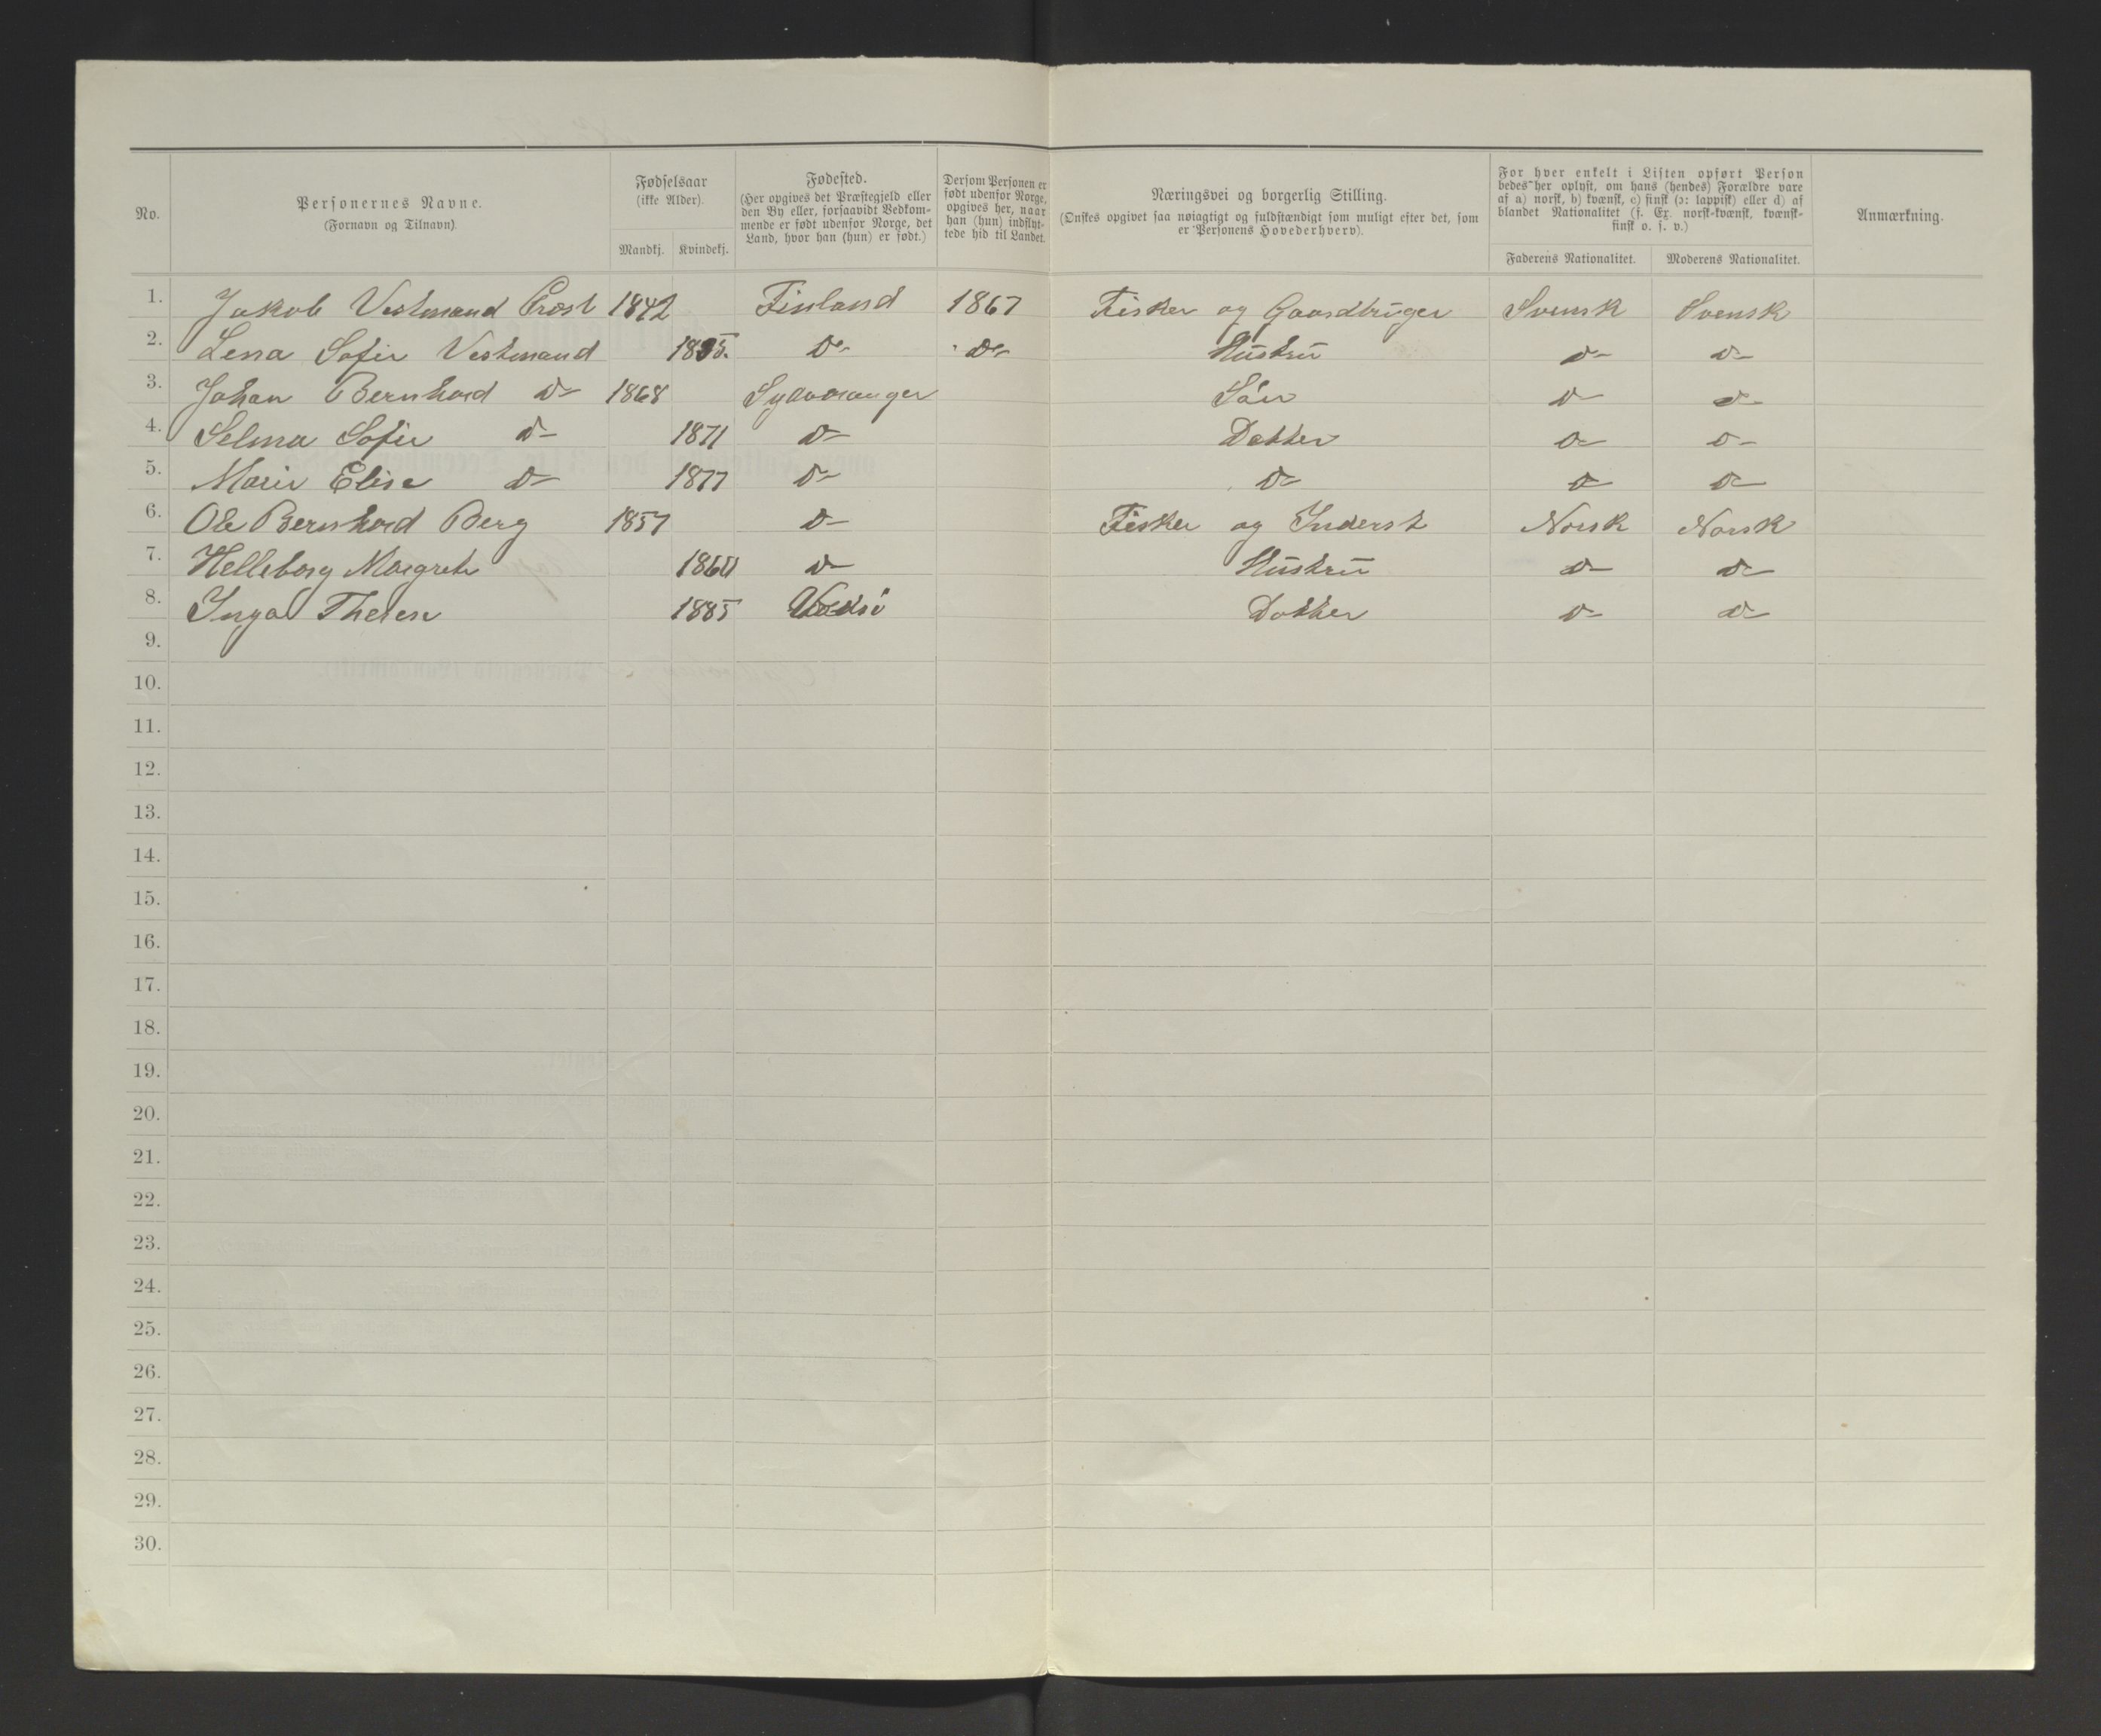 No.
Personernes Navne.
(Fornavn og Tilnavn).
Fødselsaar
(ikke Alder).
Mandkj. Kvindekj.
Fødested.
(Her opgives det Præstegjeld eller
den By eller, forsaavidt Vedkom-
mende er født udenfor Norge, det
Land, hvor han (hun) er født.)
Dersom Personen er
født udenfor Norge,
opgives her, naar
han (hun) indflyt-
tede hid til Landet.
Næringsvei og borgerlig Stilling.
(Ønskes opgivet saa nøiagtigt og fuldstændigt som muligt efter det, som
er Personens Hovederhverv).
For hver enkelt i Listen opført Person
bedes her oplyst, om hans (hendes) Forældre vare
af a) norsk, b) kvænsk, c) finsk (ɔ: lappisk) eller d) af
blandet Nationalitet (f. Ex. norsk-kvænsk, kvænsk-
finsk o. s. v.)
Faderens Nationalitet. Moderens Nationalitet.
Anmærkning.
1. Jakob Vestmand 1842 Finland 1867 Fisker og Gaardbruger Svensk Svensk
2. Lena Sofie Vestmand 18 5. Do Do Hustru Do Do
3. Johan Bernhard Do 1868 Sydvaranger Søn Do Do
4. Selma Sofie Do 1871 Do Datter Do Do
5. Marie Elise Do 1877 Do Do Do Do
6. Ole Bernhard Berg 1857 Do Fisker og Inderst Norsk Norsk
7. Helleborg Margrete Do Hustru Do Do
8. Inga Therese 1885 Vadsø Datter Do Do
9.
10.
11.
12.
13.
14.
15.
16.
17.
18.
19.
20.
21.
22.
23.
24.
25.
26.
27.
28.
29.
30.